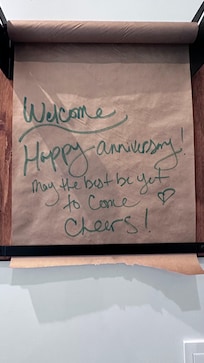 Welcome
Happy anniversary!
May the best be yet
to Come ♡
Cheers!